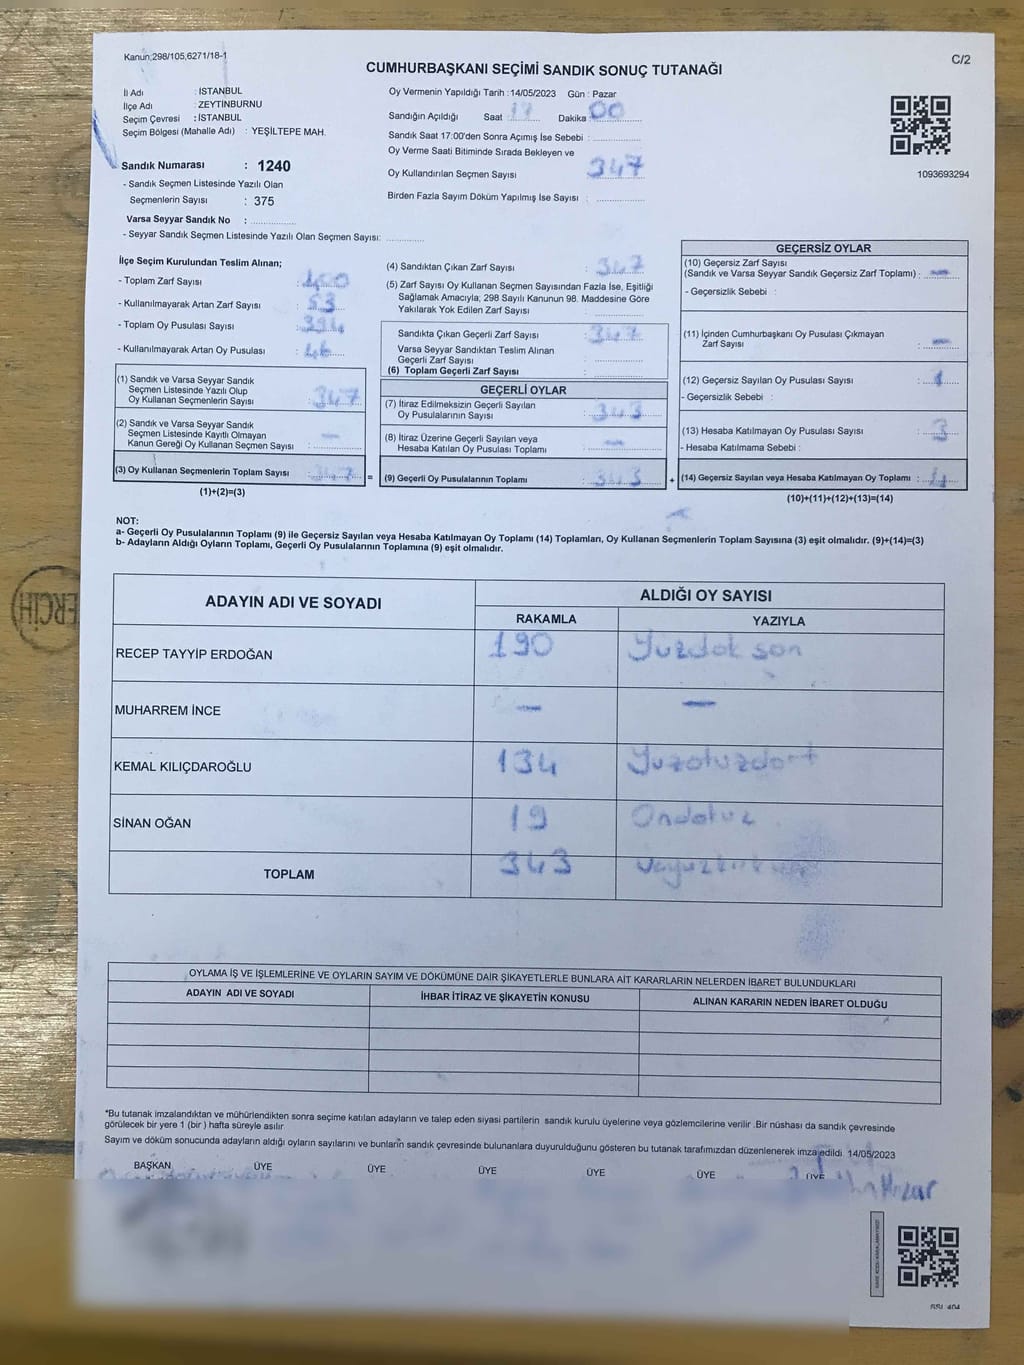 Kanun;298/105,6271/18-1
C/2
CUMHURBAŞKANI SEÇİMİ SANDIK SONUÇ TUTANAĞI
İl Adı : İSTANBUL
İlçe Adı : ZEYTİNBURNU
Seçim Çevresi : İSTANBUL
Seçim Bölgesi (Mahalle Adı) : YEŞİLTEPE MAH.
Sandık Numarası : 1240
- Sandık Seçmen Listesinde Yazılı Olan
Seçmenlerin Sayısı : 375
Varsa Seyyar Sandık No :
- Seyyar Sandık Seçmen Listesinde Yazılı Olan Seçmen Sayısı:
Oy Vermenin Yapıldığı Tarih :14/05/2023 Gün : Pazar
Sandığın Açıldığı Saat : 17 Dakika 00
Sandık Saat 17:00'den Sonra Açımış İse Sebebi :
Oy Verme Saati Bitiminde Sırada Bekleyen ve
Oy Kullandırılan Seçmen Sayısı : 347
Birden Fazla Sayım Döküm Yapılmış İse Sayısı :
1093693294
İlçe Seçim Kurulundan Teslim Alınan;
- Toplam Zarf Sayısı : 400
- Kullanılmayarak Artan Zarf Sayısı : 53
- Toplam Oy Pusulası Sayısı : 394
- Kullanılmayarak Artan Oy Pusulası : 46
(1) Sandık ve Varsa Seyyar Sandık
Seçmen Listesinde Yazılı Olup
Oy Kullanan Seçmenlerin Sayısı : 347
(2) Sandık ve Varsa Seyyar Sandık
Seçmen Listesinde Kayıtlı Olmayan
Kanun Gereği Oy Kullanan Seçmen Sayısı : —
(3) Oy Kullanan Seçmenlerin Toplam Sayısı : 347 =
(1)+(2)=(3)
(4) Sandıktan Çıkan Zarf Sayısı : 347
(5) Zarf Sayısı Oy Kullanan Seçmen Sayısından Fazla İse, Eşitliği
Sağlamak Amacıyla; 298 Sayılı Kanunun 98. Maddesine Göre
Yakılarak Yok Edilen Zarf Sayısı :
Sandıkta Çıkan Geçerli Zarf Sayısı : 347
Varsa Seyyar Sandıktan Teslim Alınan
Geçerli Zarf Sayısı :
(6) Toplam Geçerli Zarf Sayısı :
GEÇERLİ OYLAR
(7) İtiraz Edilmeksizin Geçerli Sayılan
Oy Pusulalarının Sayısı : 343
(8) İtiraz Üzerine Geçerli Sayılan veya
Hesaba Katılan Oy Pusulası Toplamı : —
(9) Geçerli Oy Pusulalarının Toplamı : 343 +
GEÇERSİZ OYLAR
(10) Geçersiz Zarf Sayısı
(Sandık ve Varsa Seyyar Sandık Geçersiz Zarf Toplamı) : —
- Geçersizlik Sebebi :
(11) İçinden Cumhurbaşkanı Oy Pusulası Çıkmayan
Zarf Sayısı : —
(12) Geçersiz Sayılan Oy Pusulası Sayısı : 1
- Geçersizlik Sebebi :
(13) Hesaba Katılmayan Oy Pusulası Sayısı : 3
- Hesaba Katılmama Sebebi :
(14) Geçersiz Sayılan veya Hesaba Katılmayan Oy Toplamı : 4
(10)+(11)+(12)+(13)=(14)
NOT:
a- Geçerli Oy Pusulalarının Toplamı (9) ile Geçersiz Sayılan veya Hesaba Katılmayan Oy Toplamı (14) Toplamları, Oy Kullanan Seçmenlerin Toplam Sayısına (3) eşit olmalıdır. (9)+(14)=(3)
b- Adayların Aldığı Oyların Toplamı, Geçerli Oy Pusulalarının Toplamına (9) eşit olmalıdır.
ADAYIN ADI VE SOYADI ALDIĞI OY SAYISI
RAKAMLA YAZIYLA
RECEP TAYYİP ERDOĞAN 190 Yüzdok son
MUHARREM İNCE — —
KEMAL KILIÇDAROĞLU 134 Yüzotuzdört
SİNAN OĞAN 19 Ondokuz
TOPLAM 343
OYLAMA İŞ VE İŞLEMLERİNE VE OYLARIN SAYIM VE DÖKÜMÜNE DAİR ŞİKAYETLERLE BUNLARA AİT KARARLARIN NELERDEN İBARET BULUNDUKLARI
ADAYIN ADI VE SOYADI İHBAR İTİRAZ VE ŞİKAYETİN KONUSU ALINAN KARARIN NEDEN İBARET OLDUĞU
*Bu tutanak imzalandıktan ve mühürlendikten sonra seçime katılan adayların ve talep eden siyasi partilerin sandık kurulu üyelerine veya gözlemcilerine verilir .Bir nüshası da sandık çevresinde
görülecek bir yere 1 (bir ) hafta süreyle asılır
Sayım ve döküm sonucunda adayların aldığı oyların sayılarını ve bunların sandık çevresinde bulunanlara duyurulduğunu gösteren bu tutanak tarafımızdan düzenlenerek imza edildi. 14/05/2023
BAŞKAN ÜYE ÜYE ÜYE ÜYE ÜYE ÜYE